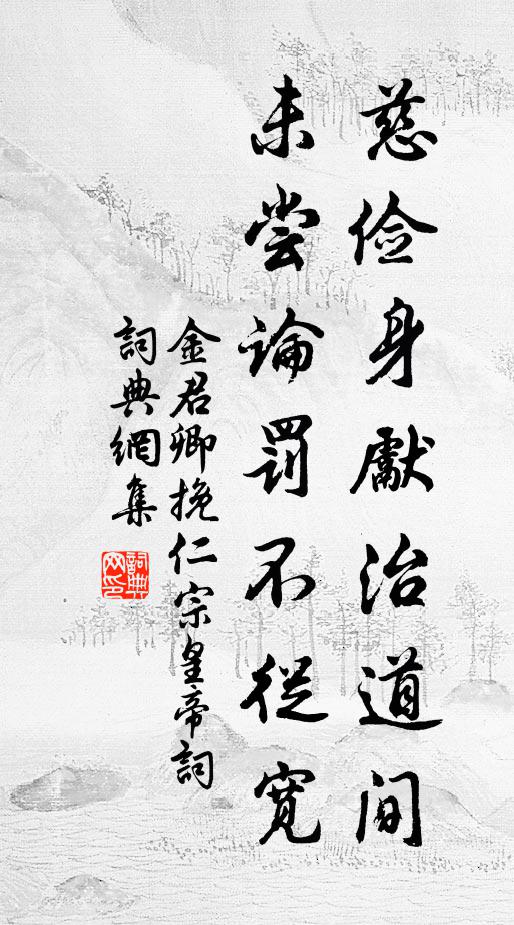 慈儉身獻治道間
未尝論罰不從寬
金君卿挽仁宗皇帝詞
詞典網集
詞典网印